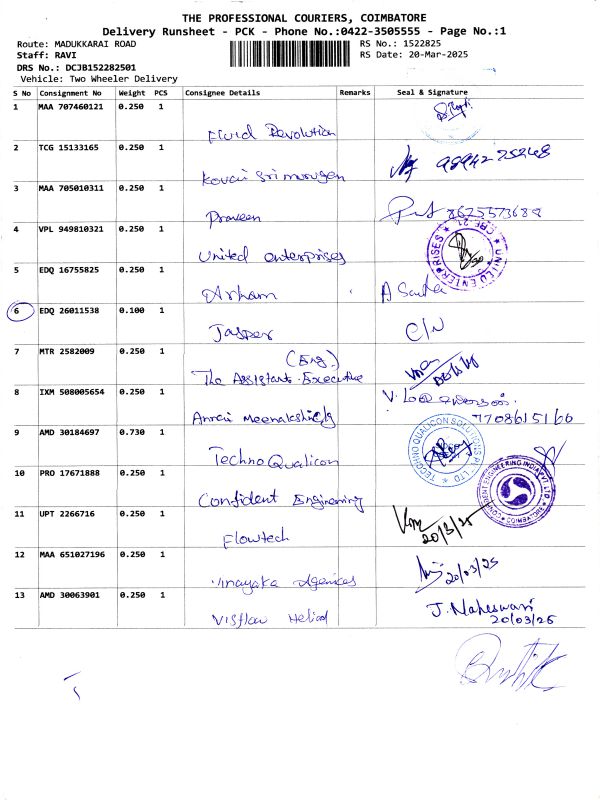 THE PROFESSIONAL COURIERS, COIMBATORE
Delivery Runsheet - PCK - Phone No.:0422-3505555 - Page No.:1
Route: MADUKKARAI ROAD
RS No.: 1522825
Staff: RAVI
RS Date: 20-Mar-2025
DRS No.: DCJB152282501
Vehicle: Two Wheeler Delivery
S No Consignment No Weight PCS Consignee Details Remarks Seal & Signature
1 MAA 707460121 0.250 1
Fluid Revolution
2 TCG 15133165 0.250 1
Kovai Sri murugan
3 MAA 705010311 0.250 1
Praveen
4 VPL 949810321 0.250 1
United enterprises
UNITED ENTERPRISES
5 EDQ 16755825 0.250 1
Arham
6 EDQ 26011538 0.100 1
Jasper C/N
7 MTR 2582009 0.250 1
(Eng.)
The Assistant Executive
8 IXM 508005654 0.250 1
Annai Meenakshi
7708615160
9 AMD 30184697 0.730 1
Techno Qualicon
TECHNO QUALICON SOLUTIONS PVT LTD
10 PRO 17671888 0.250 1
Confident Engineering
CONFIDENT ENGINEERING INDIA PVT. LTD
11 UPT 2266716 0.250 1
Flowtech 20/3/25
12 MAA 651027196 0.250 1
Vinayaka Agencies 20/03/25
13 AMD 30063901 0.250 1
J. Maheswari
20/03/25